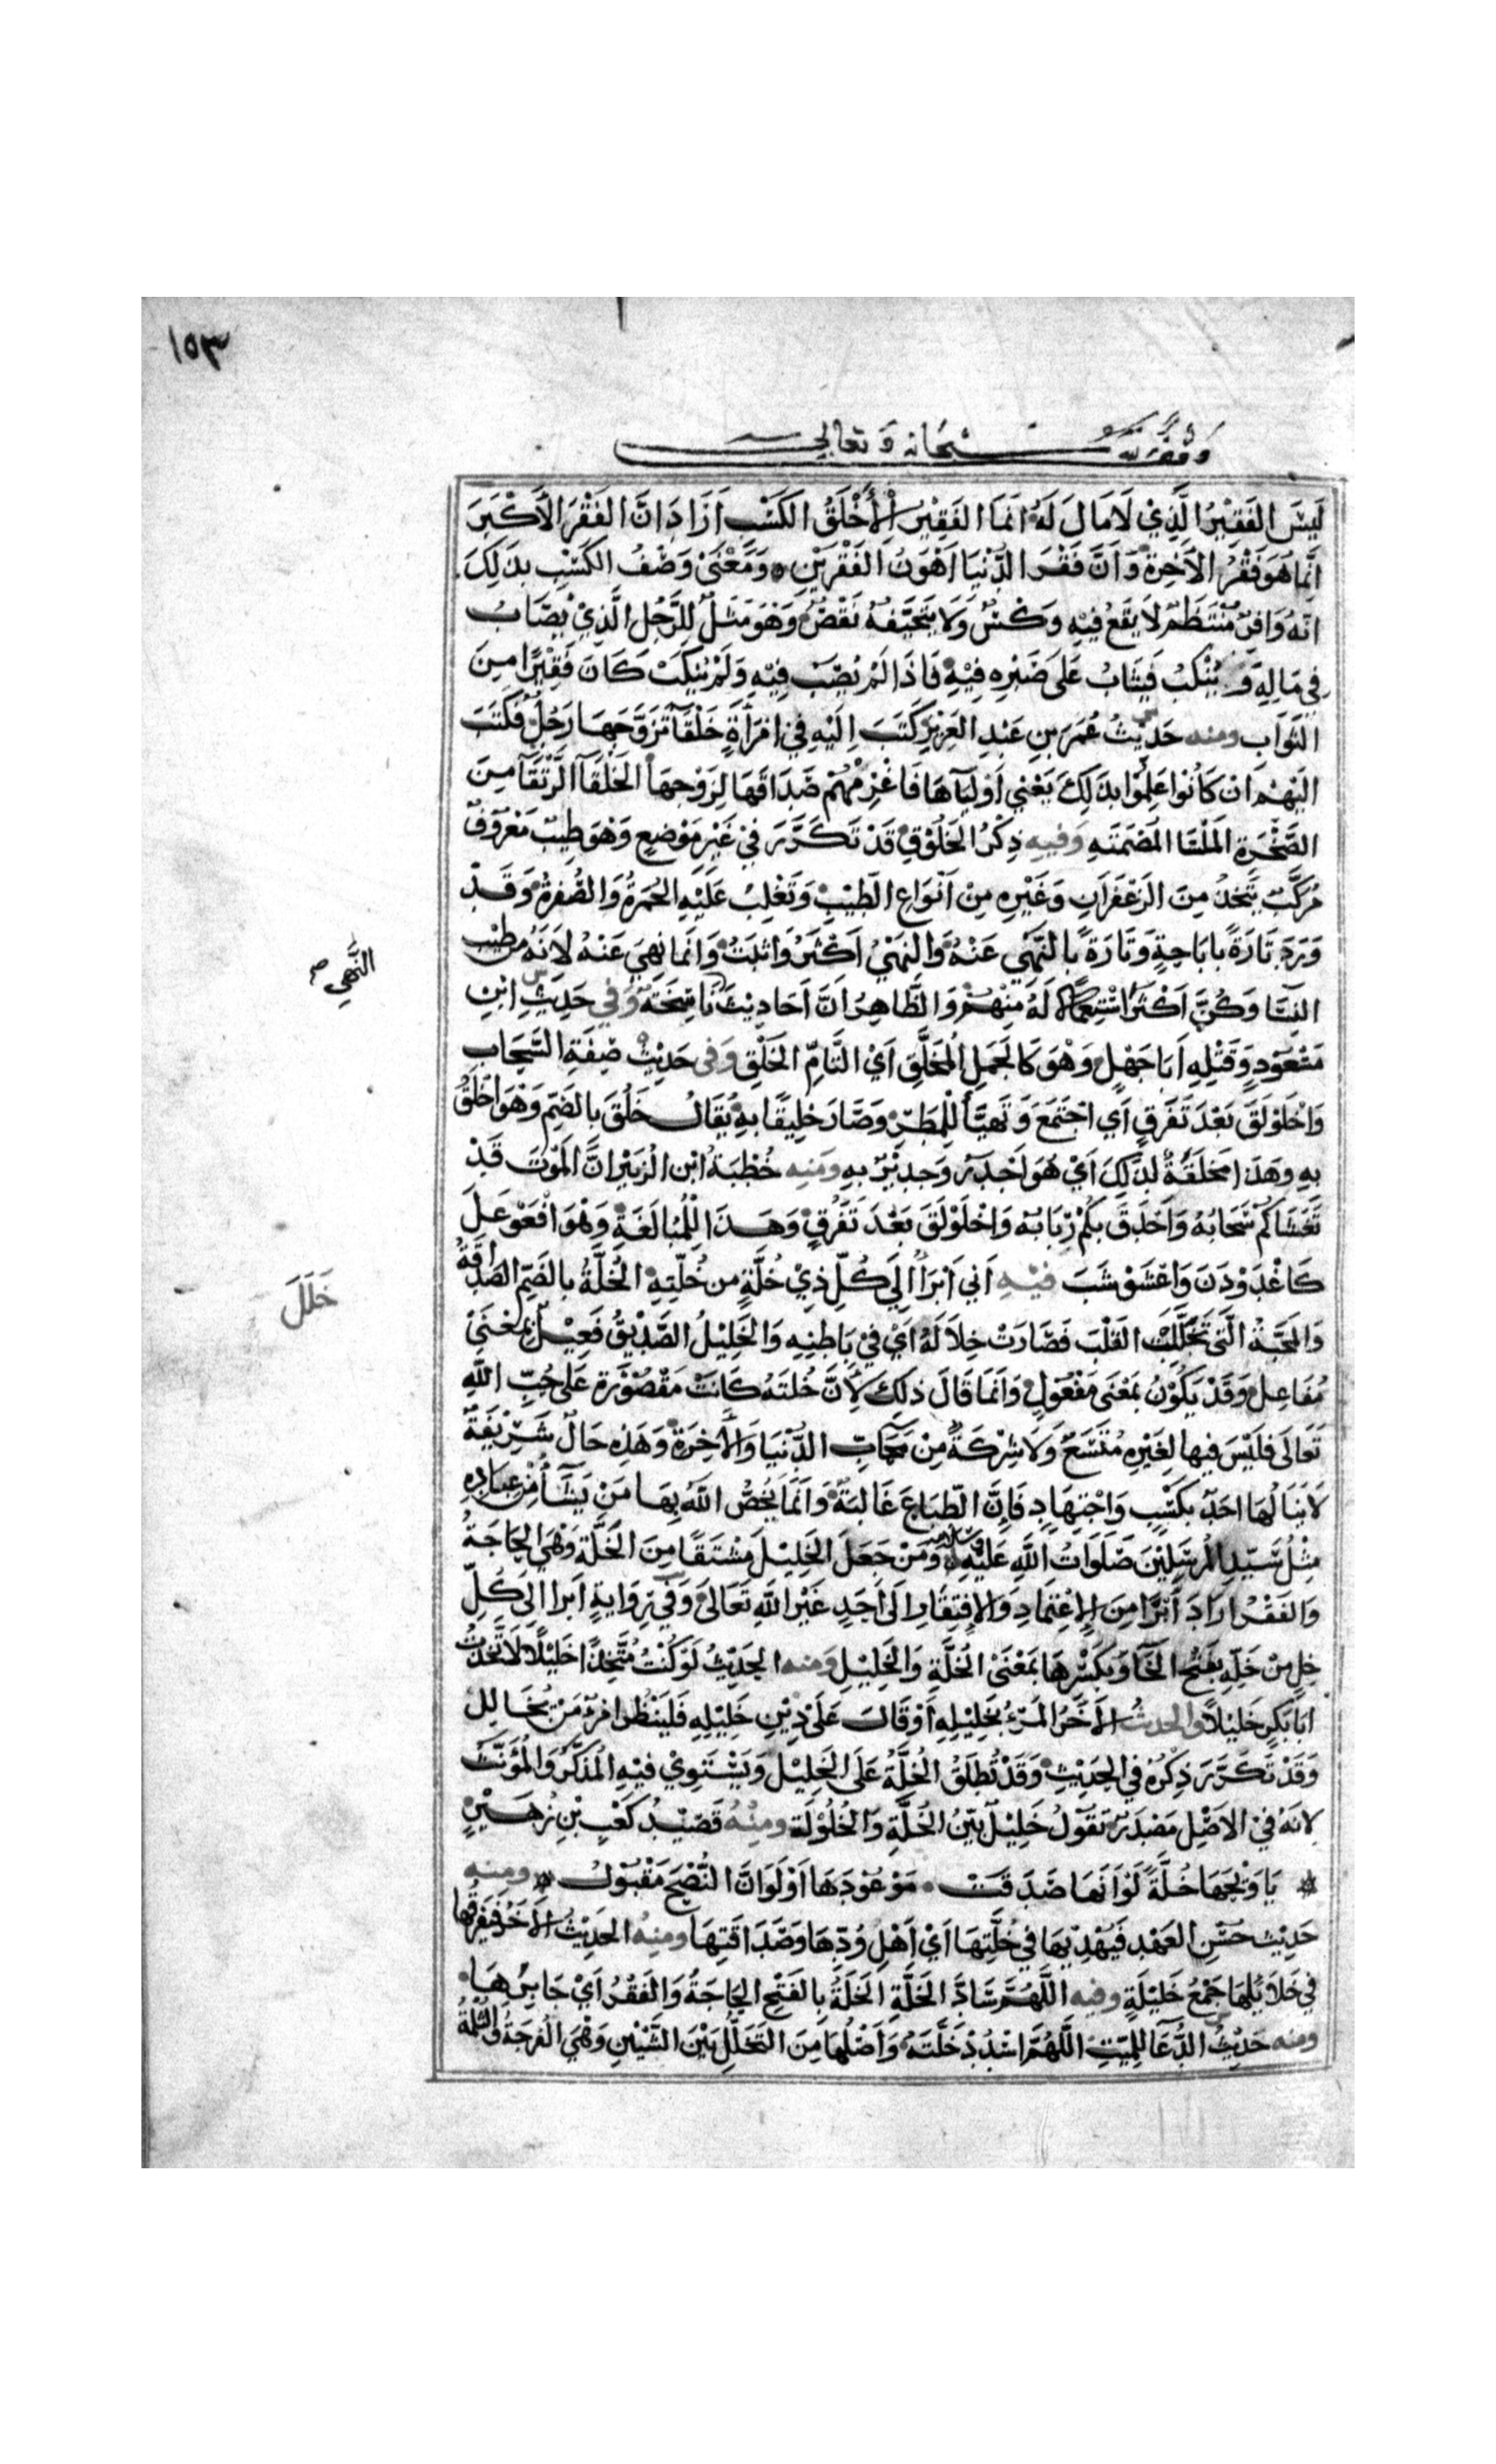 ١٥٣
وقف لله سبحانه وتعالى
لَيسَ الفَقِيْرُ الَّذِيْ لَا مَالَ لَهُ انَمَا الفَقِيْرُ الْأَخْلَقُ الكَسْبِ اَرَادَ انَّ الفَقْرَ الأَكْبَرَ
انَّمَا هُوَ فَقْرُ الآخِرَة وَ اَنَّ فَقْرَ الدُّنْيَا اَهْوَنُ الفَقْرَيْنِ وَمَعْنَى وَصْفُ الكَسْبِ بذَلِكَ
انّه وَافِرٌ مُنْتَظَمٌ لَا يَقَعُ فيْهِ وَكْسٌ وَلَا يَتَحَيَّفهُ نَقْصٌ وَهْوَ مَثَلٌ لِلرَّجُلِ الَّذِيْ يُصَابُ
في مَالِهِ وَ يُنْكَبُ فَيُثَابُ عَلى صَبْرِهِ فِيْهِ فَاذَا لَمْ يُصَب فِيْهِ وَلَمْ يُنكَبْ كَانَ فَقِيْرًا مِنَ
الثَوَابِ ومنه حَديْثُ عُمَرَ بنِ عَبْدِ العَزِيْزِ كَتَبَ اِلَيْهِ فِي امْرَأَةٍ خَلْقَا تَزَوَّجَهَا رَجُلٌ فَكَتَبَ
اليْهِمْ انْ كَانُوا عَلِمُوا بِذَلِكَ يَعْنِي اَوْلِيَآهَا فَاغْرِمْهُمْ صَدَاقَهَا لِزَوْجِهَا الخَلْقَآ الرَّتْقَآ مِنَ
الصَّخْرَةِ المَلْسَا المُصْمَتَه وَفيه ذِكْرُ الخَلُوْقِ قَدْ تَكَرَّرَ فيْ غَيْرِ مَوْضعٍ وَهْوَ طِيْبٌ مَعْرُوْفٌ
مُرَكَّبٌ يُتَّخَذُ مِنَ الزَعْفَرَانِ وَغَيْرِهِ مِنْ اَنْوَاعِ الطّيْبِ وَتَغْلِبُ عَلَيْهِ الحُمْرَةُ وَالصُّفْرَةُ وَقَدْ
وَرَدَ تَارَةً بابَاحَةٍ وَتَارَةً بالنَهْي عَنْهُ وَالنهْيُ اَكْثَرُ وَاثبَتُ وَانَّمَا نُهِيَ عَنْهُ لاَنّهُ مِن طيْبِ
النّسَا وَكُنَّ اَكْثَرَ اسْتِعْمَالاً لَهُ مِنْهُمْ وَالظَّاهِرُ اَنَّ اَحَادِيْثَ نَاسِخَة وَفي حَدِيْثِ ابْنِ
مَسْعُوْدٍ وَقَتْلِهِ اَبَا جَهْلٍ وَهْوَ كَالجَمَلِ المُخَلَّقِ اَيْ التَّامِّ الخَلْقِ وَفي حَدِيْثِ صِفَةِ السَّحَابِ
وَاخْلَوْلَقَ بَعْدَ تَفَرقٍ اَي اجْتَمَعَ وَتَهَيَّأَ لِلْمَطَرِ وَصَارَ خلِيْقًا بهِ يُقَالُ خَلُقَ بالضَّمِّ وَهْوَ اخْلَقُ
بهِ وهَذا مَخْلَقَةٌ لِذَلِكَ اَيْ هُوَ اَجْدَرُ وَجدِيْرٌ بهِ ومنه خُطْبَةُ ابْنِ الزُبَيْرِ انَّ المَوْتَ قَدْ
تَغَشَّاكُمْ سَحَابُهُ وَاَحْدَقَ بكُمْ رَبَابُه وَاخْلَوْلَقَ بَعْدَ تَفَرُّقٍ وَهَذَا لِلْمُبَالَغَةِ وَهْوَ افْعَوْعَلَ
كَاغْدَوْدَنَ وَاعْشَوْشَبَ فيه اني اَبْرَأُ الى كُلِّ ذِيْ خُلَّةٍ مِن خُلّتِهِ الخُلَّةُ بالضَمِّ الصَدَاقَةُ
وَالمَحَبَّةُ الَّتي تَخَلَّلَتِ القَلْبَ فَصَارَتْ خِلاَلَهُ اَيْ فيْ بَاطِنِهِ وَالخَلِيْلُ الصَّدْيقُ فَعِيْلٌ بمَعْنَى
مُفَاعِل وَقَدْ يَكُوْنُ بمَعْنَى مَفْعُوْلٍ وَانَّمَا قَالَ ذلِكَ لأَنَّ خُلتَهُ كَانَتْ مَقْصُوْرَة عَلى حُبِّ اللّهِ
تَعَالَى فَليْسَ فيها لِغَيْرِهِ مُتَّسَعٌ وَلَا شِرْكَةٌ مِنْ مَحَابِّ الدُّنْيَا وَالآخِرَةِ وَهَذِهِ حَالٌ شَرِيْفَةٌ
لَا يَنَالُهَا احَدٌ بكَسْبٍ وَاجْتِهَادٍ فَاِنَّ الطِّبَاعَ غَالِبَة وَانَّمَا يَخُصُّ اللّهُ بِهَا مَنْ يَشَآ مِنْ عِبَادِهِ
مِثْلُ سَيّدِ المُرْسَلِيْنَ صَلَوَاتُ اللّهِ عَلَيْهِ وسلامه وَمَنْ جَعَلَ الخَلِيْلَ مُشْتَقًا مِنَ الخَلَّةِ وَهْيَ الحَاجَةُ
وَالفَقْرُ ارَادَ اَبْرَا مِنَ الاِعْتِمَادِ وَالاِفْتِقَارِ الَى اَحَدٍ غَيْرِ اللّهِ تَعَالَى وَفي رِوَايةٍ ابرا الَى كُلِّ
خِلٍّ مِنْ خَلّهِ بفَتْحِ الخَآ وَبكَسْرِهَا بمَعْنَى الخُلَّةِ وَالخَلِيْلِ ومنه الحَدِيْثُ لَوْ كُنْتُ مُتَّخِذًا خَلِيْلًا لَاتَّخَذْتُ
ابَا بَكْرٍ خَلِيْلاً والحديث الآخَرُ المَرْءُ بخَلِيْلِهِ اَوْ قَالَ عَلَى دِيْنِ خَلِيْلِهِ فَلْيَنْظُر امْرؤٌ مَنْ يُخَالِل
وَقَدْ تَكَرَّرَ ذِكْرُهُ في الحَدِيْثِ وَقَدْ تُطلَقُ الخُلَّةُ عَلَى الخَلِيْلِ وَيَسْتَوِيْ فيْهِ المُذَكَّرُ وَالمُؤَنَّثُ
لانّهُ فيْ الاَصْلِ مَصْدَرٌ تَقُوْلُ خَلِيْلٌ بَيّنُ الخُلَّةِ وَالخُلُوْلَة ومنه قَصِيْدُ كَعْبِ بْنِ زُهَيْرٍ
يَا وَيْحَهَا خُلَّةً لَوْ اَنّهَا صَدَقَتْ مَوْعُوْدَهَا اَوْ لَوَانَّ النُّصْحَ مَقْبُوْلُ ومنه
حَدِيْث حُسْنِ العَهْدِ فَيُهْدِيْهَا في خُلَّتِهَا اَيْ اَهْلِ وُدّهَا وَصَدَاقَتِهَا ومنه الحَدِيْثُ الآخَرُ فَيُفَرّقُها
في خَلَائِلهَا جَمْعُ خَلِيْلَةٍ وفيه اللَّهُمَّ سَادَّ الخَلَّةِ الخَلَّةُ بالفَتْحِ الحَاجَةُ وَالفَقْرُ اَيْ جَابِرُهَا
ومنه حَدِيْثُ الدُّعَآ لِلمَيّتِ اللَّهُمَّ اسْدُدْ خَلَّتَهُ وَاَصْلُهَا مِنَ التَخَلُّلِ بَيْنَ الشَّيْئَيْنِ وَهْيَ الفُرْجَةُ وَالثُلْمَةُ
النَّهي صح
خَلَلَ